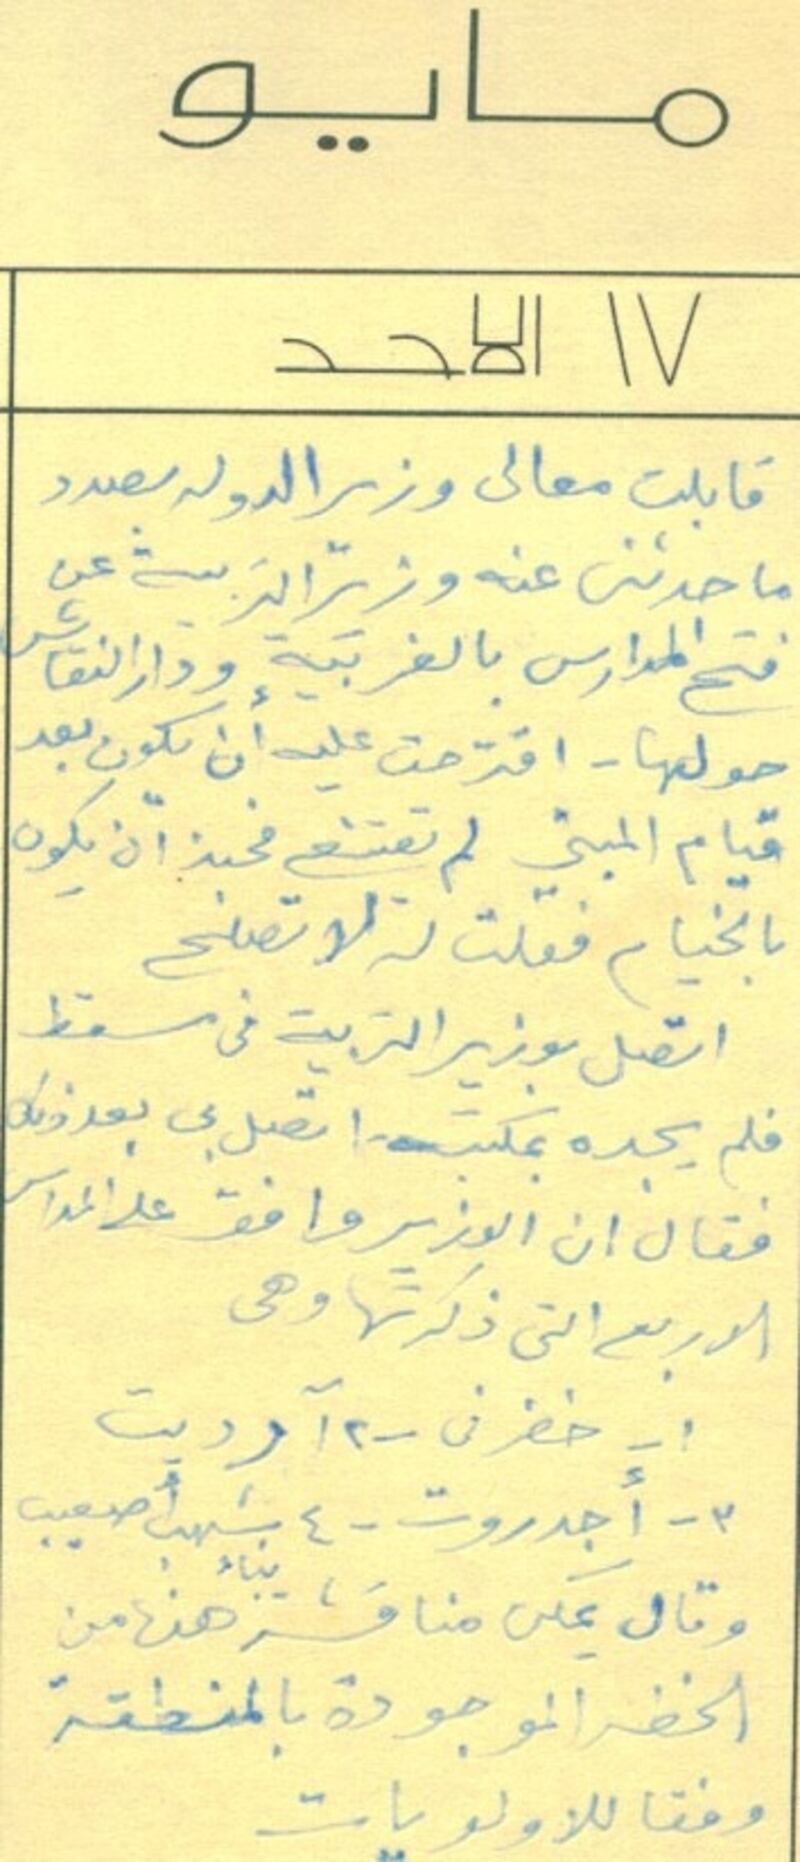 مايو
١٧ الأحد
قابلت معالى وزير الدوله بصدد
ما حدثنى عنه وزير التربية عن
فتح المدارس بالغربية ودار النقاش
حولها - اقترحت عليه أن يكون بعد
قيام المبنى لم يقتنع فحبذ أن يكون
بالخيام فقلت له لا تصلح
اتصل بوزير التربية فى مسقط
فلم يجده بمكتبه - اتصل بى بعد ذلك
فقال ان الوزير وافق على المدارس
الاربع التى ذكرتها وهى
١- خضرفى - ٢
٣- أجدروت - ٤ شهب أصعيب
وقال يمكن مناقشة بناء هذه من
الخضر الموجودة بالمنطقة
وفقا للاولويات